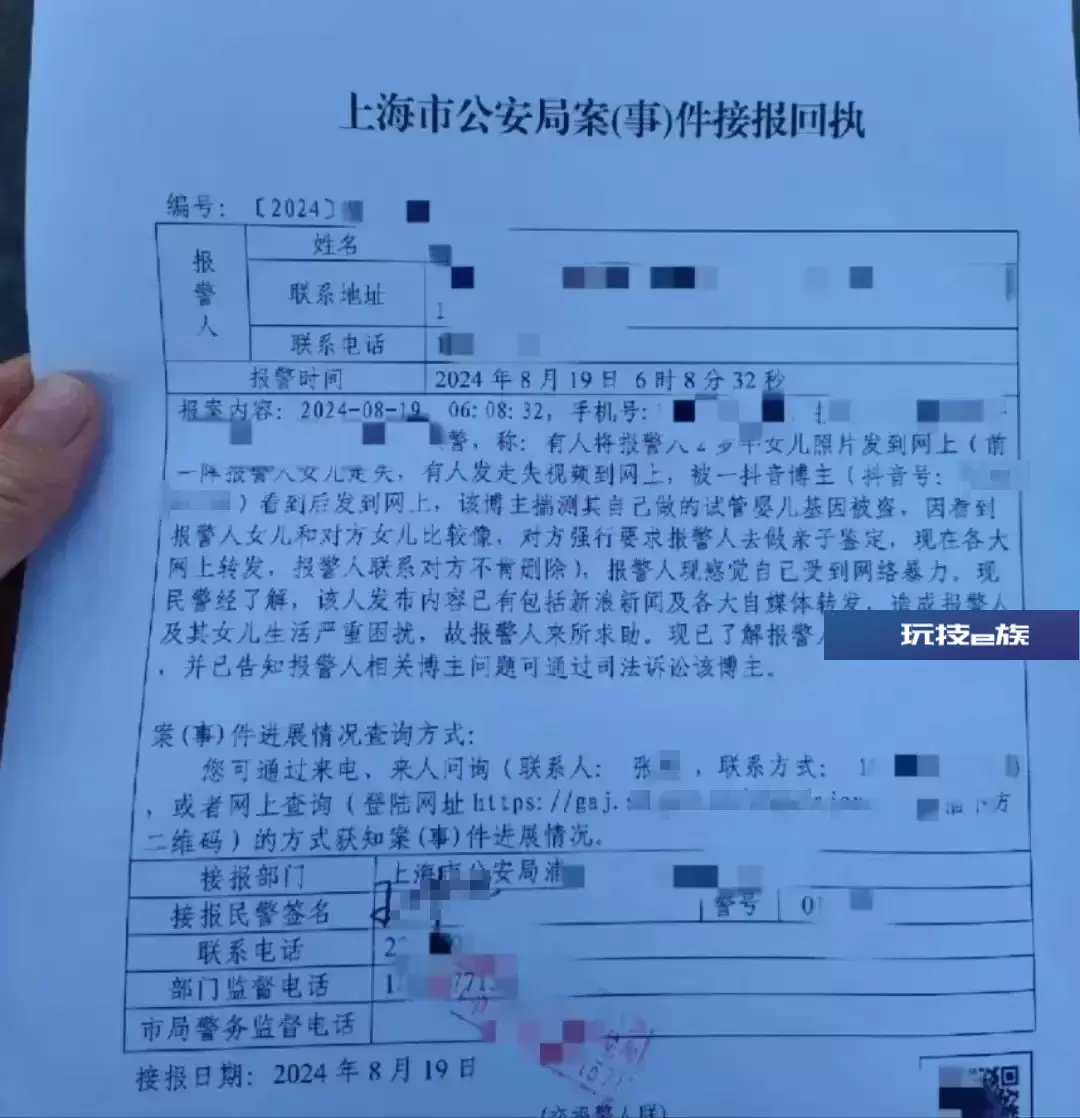 上海市公安局案(事)件接报回执
编号: 〔2024〕
报警人
姓名
联系地址
1
联系电话
报警时间 2024 年 8 月 19 日 6 时 8 分 32 秒
报案内容: 2024-08-19 06:08:32, 手机号:
警, 称: 有人将报警人 2 岁半女儿照片发到网上 (前
一阵报警人女儿走失, 有人发走失视频到网上, 被一抖音博主 (抖音号:
) 看到后发到网上, 该博主揣测其自己做的试管婴儿基因被盗, 因看到
报警人女儿和对方女儿比较像, 对方强行要求报警人去做亲子鉴定, 现在各大
网上转发, 报警人联系对方不肯删除), 报警人现感觉自己受到网络暴力。现
民警经了解, 该人发布内容已有包括新浪新闻及各大自媒体转发, 造成报警人
及其女儿生活严重困扰, 故报警人来所求助。现已了解报警人
, 并已告知报警人相关博主问题可通过司法诉讼该博主。
玩技e族
案(事)件进展情况查询方式:
您可通过来电、来人问询 (联系人: 张 , 联系方式: 1 )
, 或者网上查询 (登陆网址https://gaj.s
二维码) 的方式获知案(事)件进展情况。
接报部门 上海市公安局浦
接报民警签名 警号 01
联系电话 2
部门监督电话 1
市局警务监督电话
接报日期: 2024 年 8 月 19 日
(交报警人联)